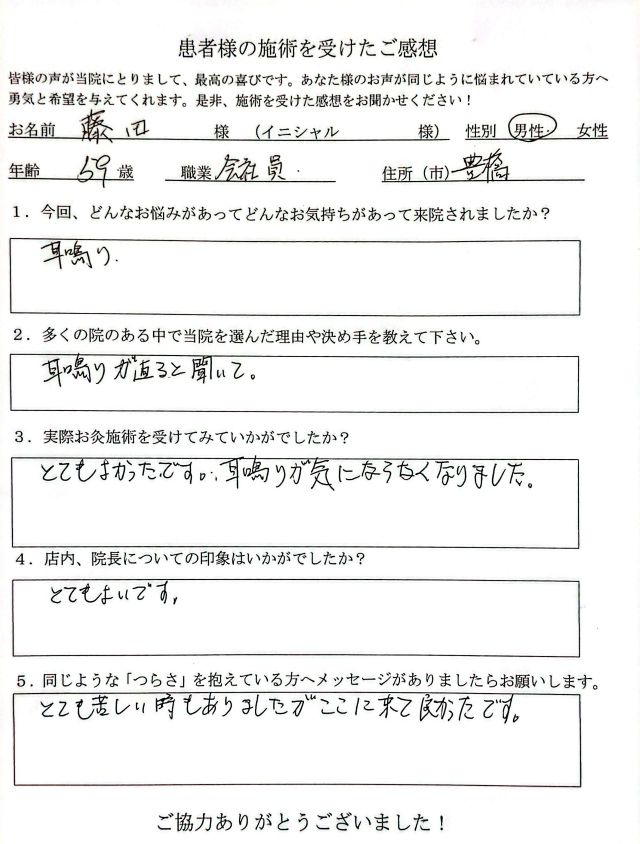 患者様の施術を受けたご感想
皆様の声が当院にとりまして、最高の喜びです。あなた様のお声が同じように悩まれていている方へ
勇気と希望を与えてくれます。是非、施術を受けた感想をお聞かせください！
お名前 藤田 様 （イニシャル 様） 性別 男性・ 女性
年齢 59 歳 職業 会社員 住所（市） 豊橋
１．今回、どんなお悩みがあってどんなお気持ちがあって来院されましたか？
耳鳴り．
２．多くの院のある中で当院を選んだ理由や決め手を教えて下さい。
耳鳴りが直ると聞いて。
３．実際お灸施術を受けてみていかがでしたか？
とてもよかったです。耳鳴りが気にならなくなりました。
４．店内、院長についての印象はいかがでしたか？
とてもよいです。
５．同じような「つらさ」を抱えている方へメッセージがありましたらお願いします。
とても苦しい時もありましたがここに来て良かったです。
ご協力ありがとうございました！